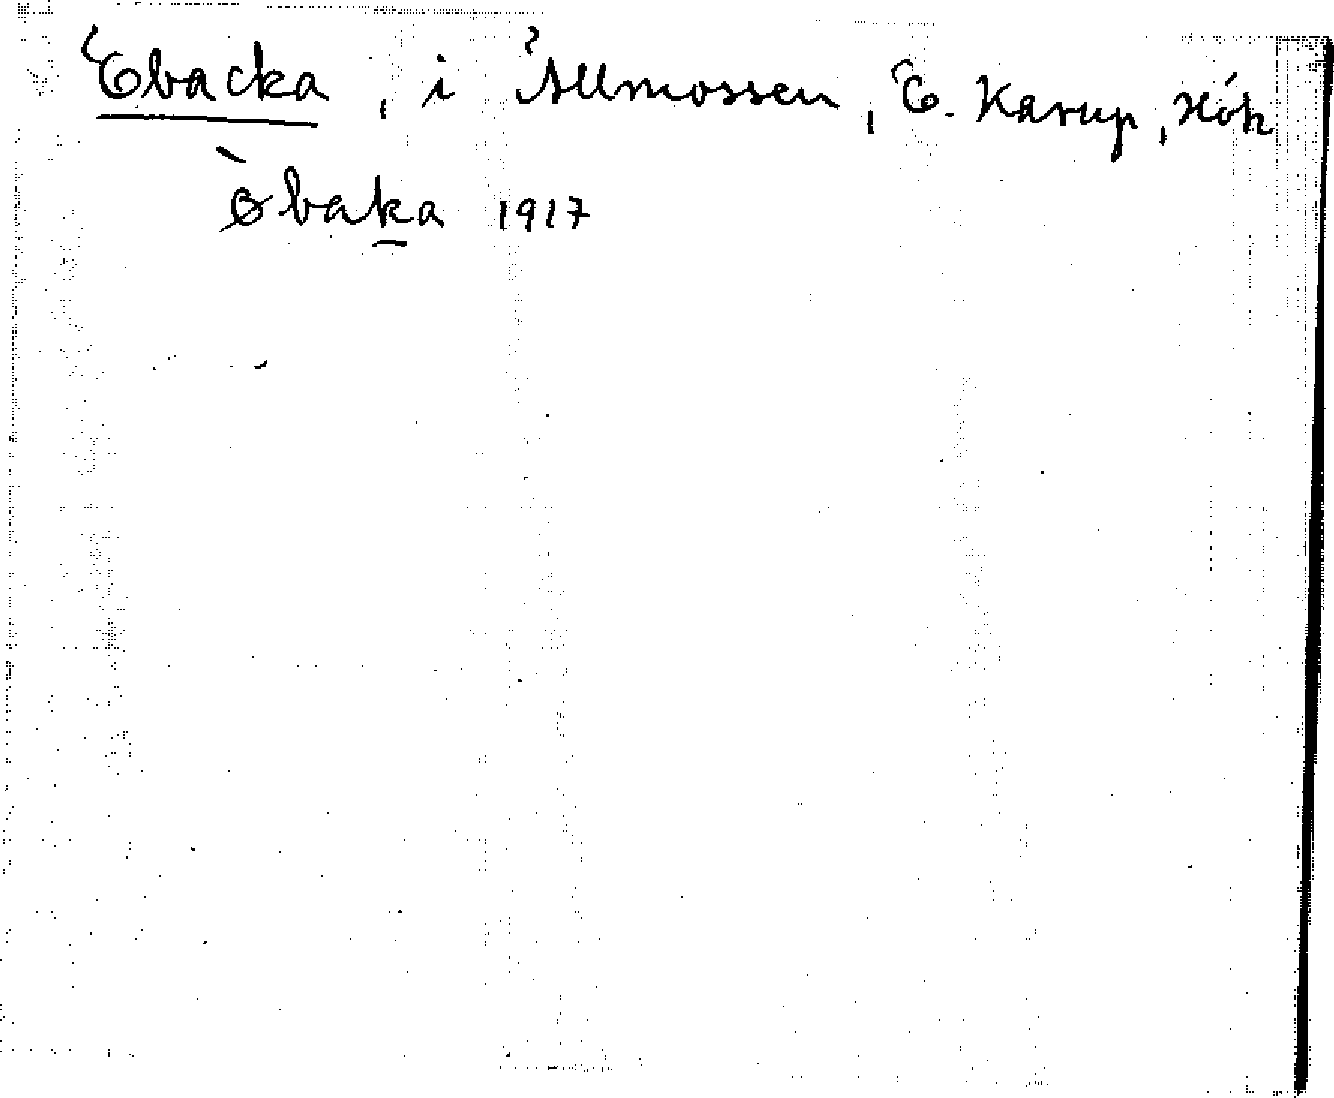 Öbacka, i Ållmossen, Ö. Karup, Hök
Øbaka 1917